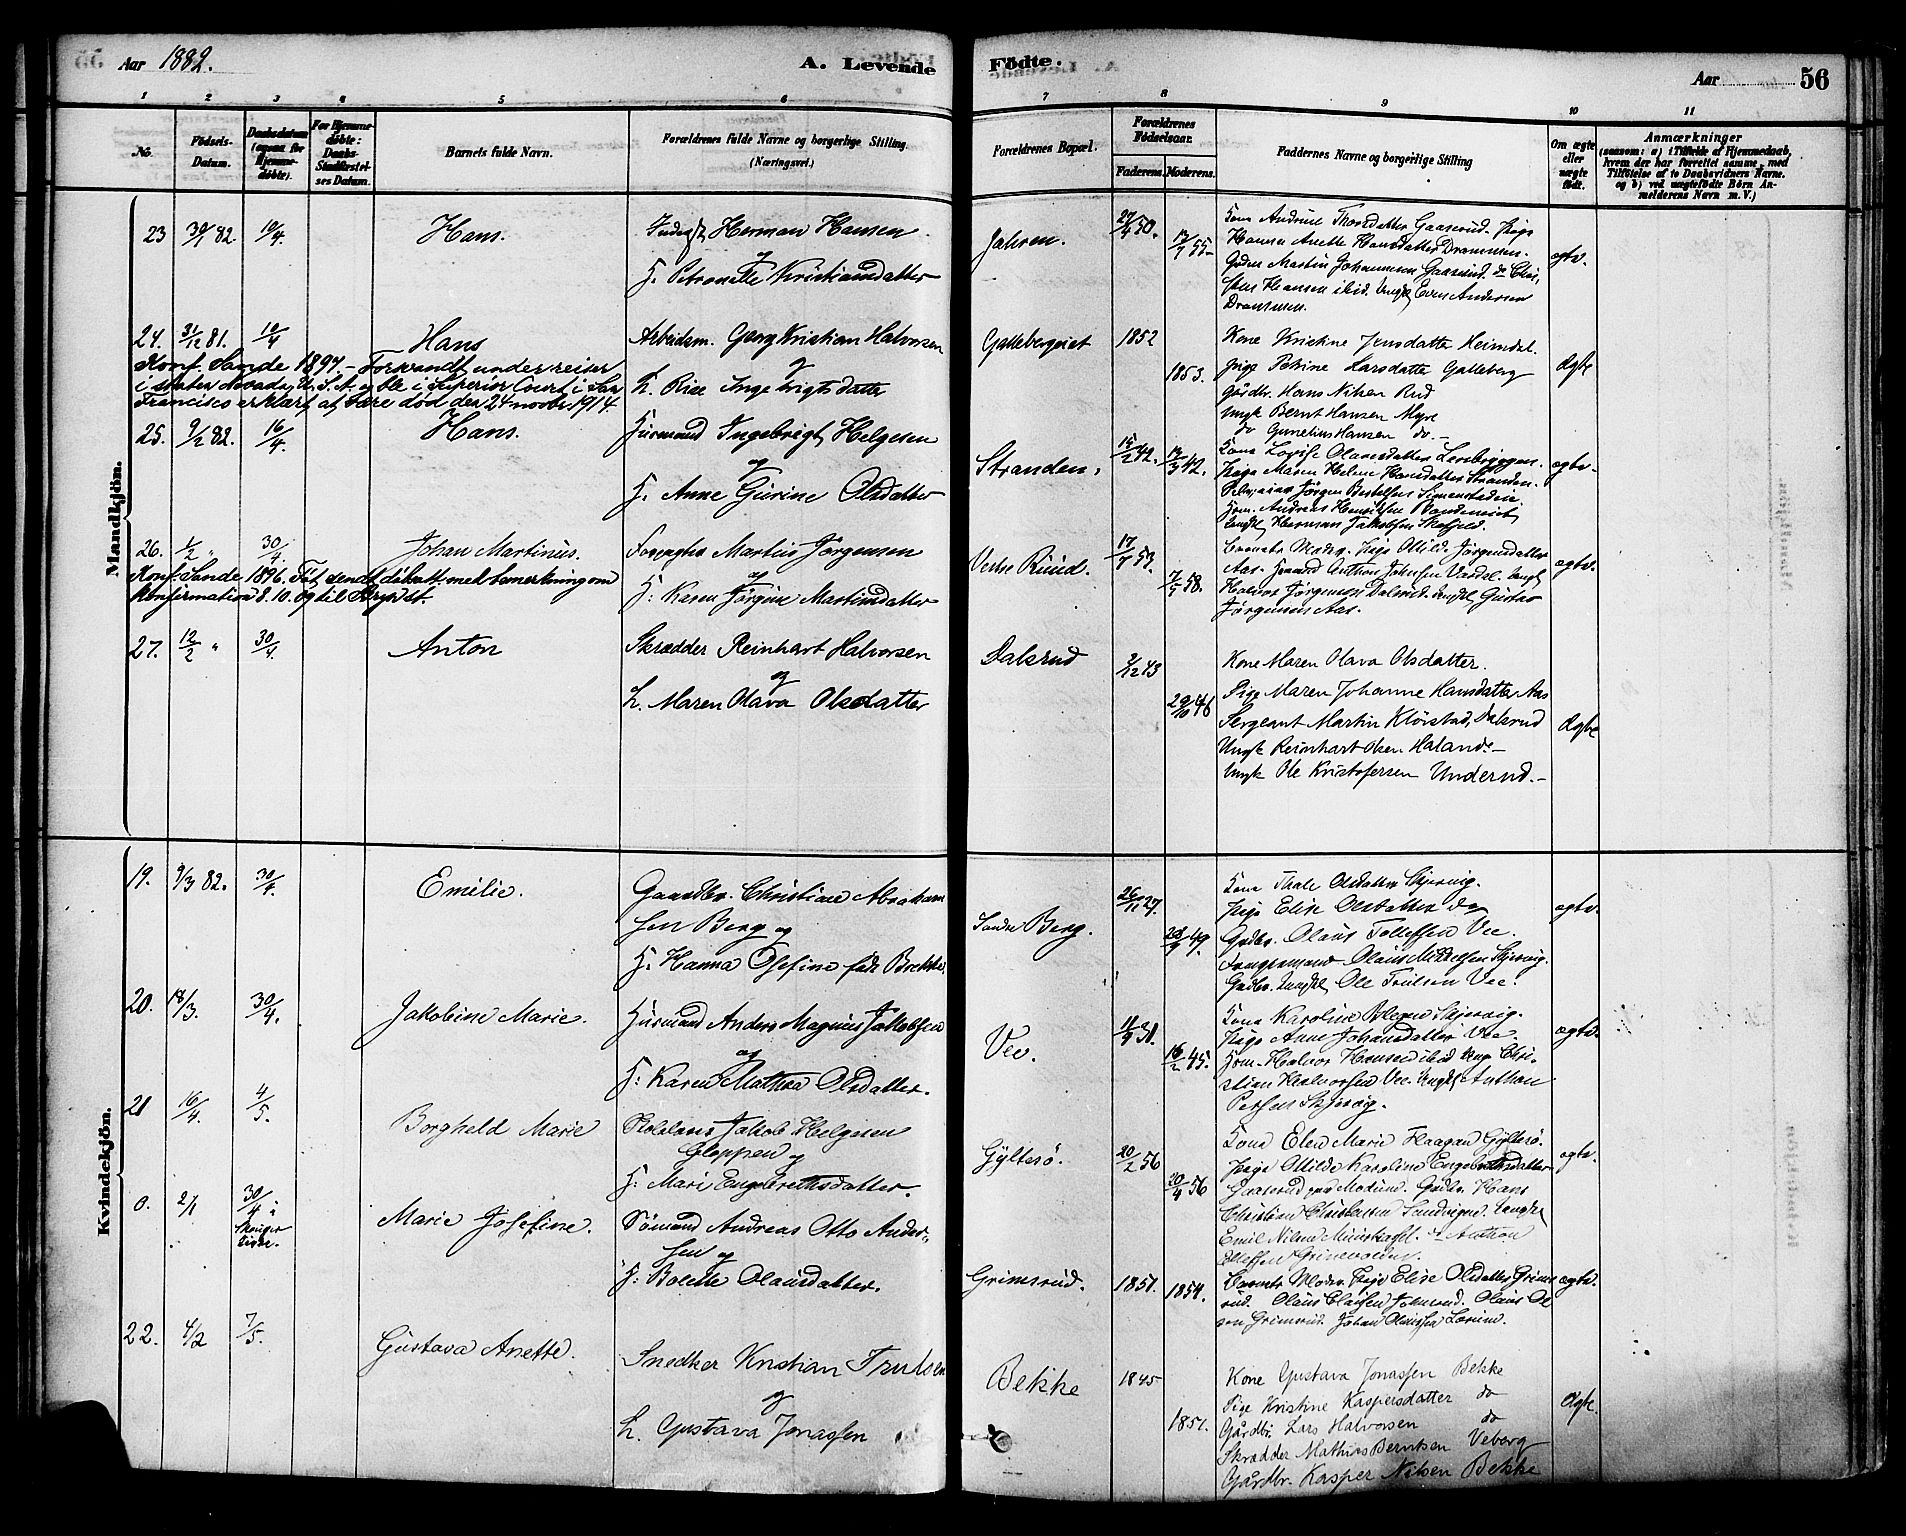 Aar 1882.
A. Levende Fødte.
Aar 56
1 2 3 4 5 6 7 8 9 10 11
No.
Fødsels-
Datum.
Daabsdatum
(ogsaa for
Hjemme-
døbte).
For Hjemme-
døbte:
Daabs-
Stadfæstel-
ses Datum.
Barnets fulde Navn.
Forældrenes fulde Navne og borgerlige Stilling.
(Næringsvei.)
Forældrenes Bopæl.
Forældrenes
Fødselsaar.
Faderens. Moderens.
Faddernes Navne og borgerlige Stilling
Om ægte
eller
uægte
født.
Anmærkninger
(saasom: a) i Tilfælde af Hjemmedaab,
hvem der har forrettet samme, med
Tilføielse af to Daabsvidners Navne.
og b) ved uægtefødte Børn An-
melderens Navn m. V.)
Mandkjön.
23 30/1 82. 10/4. Hans.
Herman Hansen
og
H. Petronelle Kristiansdatter
Jahren.
27/4 50. 13/7 55
Kone Andrine Thorsdatter Gaaserud. Pige
Hanna Anette Hansdatter Drammen.
Martin Johannesen Gaaserud. do Chri-
sten Hansen ibid. Ungk Even Andersen
Drammen.
ægte.
24. 31/12 81. 10/4 Hans
Arbeidsm. Georg Kristian Halvorsen
og
H. Rise Ingebrigtsdatter
Galleberg
1852 1853.
Kone Kristine Jensdatter Heimdal.
Pige Petrine Larsdatter Galleberg
Gårdbr. Hans Nilsen Rud
Ungk Bernt Hansen Myre
do Gunelius Hansen do.
Ægte
Konf. Sande 1897. - Forsvandt under reiser
i staten Nevada, U.S.A. og ble i Superior Court i San
Francisco erklært at være død den 24 novbr. 1914.
25. 9/2 82. 16/4. Hans.
Husmand Ingebrigt Helgesen
og
H. Anne Gurine Olsdatter
Stranden.
15/2 42. 13/3 42.
Kone Lovise Olavesdatter
Pige Maren Helene Hansdatter Stranden.
Jørgen Bertelsen
Hm. Andreas
Ungk Herman Jakobsen
ægte
26. 1/2 " 30/4 Johan Martinus.
Forpagter Martin Jörgensen
og
H: Karen Jörgine Martinsdatter
Vestre Ruud.
17/7 53. 7/5 58.
Barnets Moder. Pige Otilde Jørgensdatter
Aas. Husmand Anthon Johnsen Ungk
Halvor Jörgensen Dalsrud. Ungk Gustav
Jörgensen Aas.
ægte.
Konf. Sande 1896. Fåt sendt dåbsatt. med bemerkning om
konfirmation 8.10. og til
27. 12/2 " 30/4. Anton
Skrædder Reinhart Halvorsen
og
H. Maren Olava Olsdatter
Dalsrud
3/12 43 29/10 46
Kone Maren Olava Olsdatter.
Pige Maren Johanne Hansdatter Aas
Sergeant Martin Klørstad, Dalsrud
Ungk Reinhart Olsen Haland.
Ungk Ole Kristofersen Underud.
Ægte
Kvindekjön.
19. 9/3 82. 30/4. Emilie.
Gaardbr. Christian Abraham
sen Berg og
H. Hanna Josefine født Brekke.
Søndre Berg.
26/11 27. 28/9 49.
Kone Thale Olsdatter Skjervig.
Pige Elise Olsdatter do
Gaardbr. Olaus Tollefsen Vee.
Olaus Mikkelsen Skjervig.
Gaardbr. Ungk Ole Trulsen Vee.
ægte.
20. 18/3. 30/4. Jakobine Marie.
Husmand Anders Magnus Jakobsen
og
H: Karen Mathea Olsdatter.
Vee.
11/9 31. 16/2 45.
Kone Karoline Skjervig.
Pige Anne Johansdatter Vee.
Hm. Halvor Hansen ibid Ungk Chri-
stian Halvorsen Vee. Ungk Anthon
Petersen Skjervig.
ægte.
21 16/4. 4/5. Borghild Marie
Skolelærer Jakob Helgesen
Gloppen og
H: Mari Engebrethsdatter.
Gyltesö.
20/2 56 20/4 56
Kone Elen Marie Haagan Gyltesö.
Pige Otilde Karoline Engebrethsdatter
Gaaserud paa Modum. Gaardbr. Hans
Christian Christensen Sandvigen. Ungk
Emil Nilsen do Anthon
Ellefsen
ægte.
0. 2/1 30/4 i
Skouger
Kirke.
Marie Josefine.
Sömand Andreas Otto Ander-
sen og
H: Bolette Olausdatter.
Grimsrud.
1851. 1854.
Barnets Moder. Pige Elise Olsdatter Grims
rud. Olaus Clausen Olaus Ol
sen Grimsrud. Johan Olaussen
ægte.
22. 4/2 7/5. Gustava Anette.
Snedker Kristian Trulsen
og
H. Gustava Jonassen
Bekke
1845 1851.
Kone Gustava Jonassen Bekke
Pige Kristine Kaspersdatter do
Gårdbr. Lars Halvorsen do
Skrædder Mathias Berntsen Veberg
Gårdbr. Kasper Nilsen Bekke
Ægte.